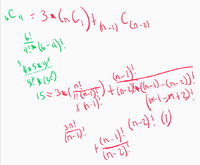 ₆C₄ = 3*(nC₁) + (n-1)C(n-2)
6!
4!*(6-4)!
3 6*5*4!
4!*(2)!
15 = 3*(n!/1(n-1)!) + (n-1)!/(n-2)!*((n-1)-(n-2))!
(n-1-n+2)!
1(n-1)!
3n!
(n-1)!
(n-2)! (1)
+ (n-1)!
(n-2)!